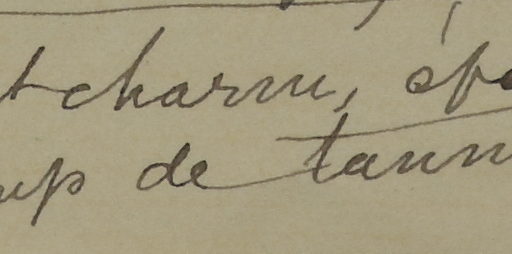 t charnu, épa
up de tann